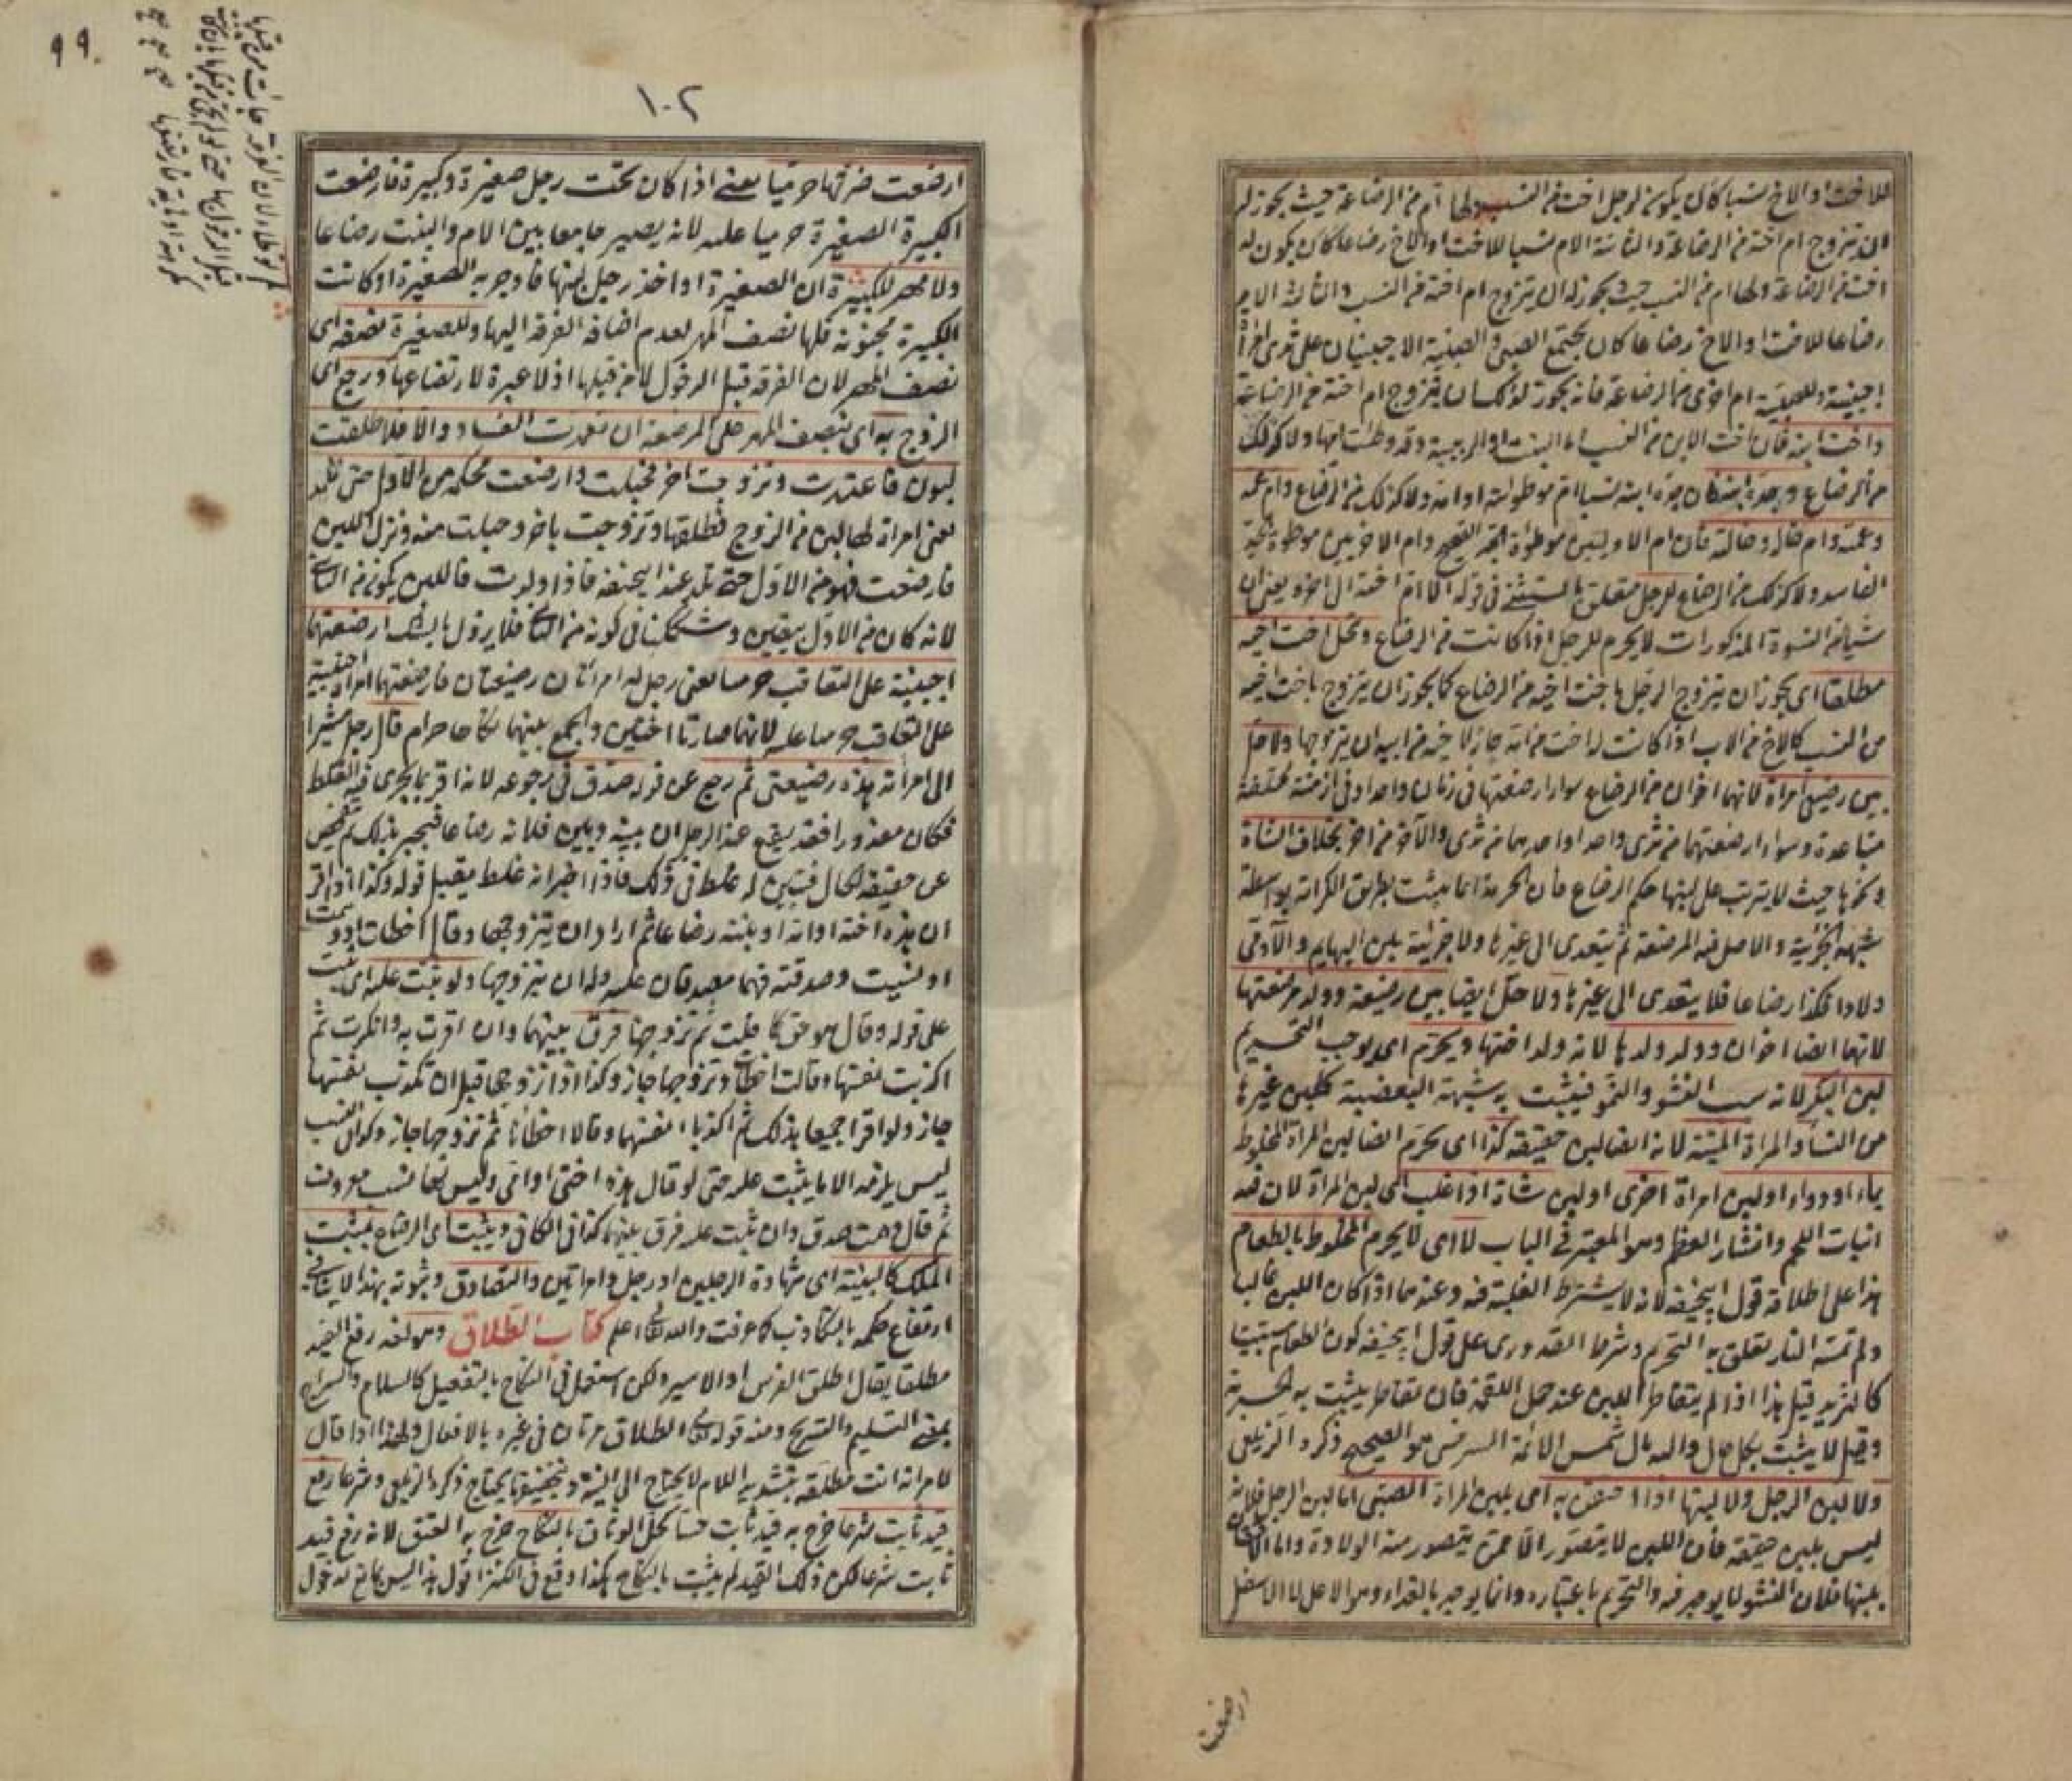 للاخت او الاخ نسبا كأن يكون لرجل اخت من النسب ولها ام من الرضاعة حيث يجوز له
ان يتزوج ام اخته من الرضاعة والثانية الام نسبا للاخت او الاخ رضاعا كأن يكون له
اخت من الرضاعة ولها ام من النسب حيث يجوز له ان يتزوج ام اخته من النسب والثالثة الام
رضاعا للاخت او الاخ رضاعا كأن يجتمع الصبى والصبية الاجنبيان على ثدى امرأة
اجنبية وللصبية ام اخرى من الرضاعة فانه يجوز لذلك ان يتزوج ام اخته من الرضاعة
واخت ابنه فان اخت الابن من النسب اما البنت او الربيبة وقد وطئت امها ولا كذلك
من الرضاع وجدة ابنه فان جدة ابنه نسبا ام موطوئته او امه ولا كذلك من الرضاع وام عمه
وعمته وام خاله وخالته فان ام الاولين موطوءة الجد الصحيح وام الاخريين موطوءة الجد
الفاسد ولا كذلك من الرضاع للرجل متعلق بالمستثنى فى قوله الا ام اخته الى اخره يعنى ان
شيئا من النسوة المذكورات لا يحرم للرجل اذا كانت من الرضاع وتحل اخت اخيه
مطلقا اى يجوز ان يتزوج الرجل باخت اخيه من الرضاع كما يجوز ان يتزوج باخت اخيه
من النسب كالاخ من الاب اذا كانت له اخت من امه جاز لاخيه من ابيه ان يتزوجها ولا حل
بين رضيعى امرأة لانهما اخوان من الرضاع سواء ارضعتهما فى زمان واحد او فى ازمنة مختلفة
متباعدة وسواء ارضعتهما من ثدى واحد او احدهما من ثدى والآخر من اخر بخلاف الشاة
ونحوها حيث لا يترتب على لبنها حكم الرضاع فان الحرمة انما يثبت بطريق الكرامة بواسطة
شبهة الجزئية والاصل فيه المرضعة ثم يتعدى الى غيرها ولا جزئية بين البهايم والآدمى
ولادا فكذا رضاعا فلا يتعدى الى غيرها ولا حل ايضا بين رضيعة وولد مرضعتها
لانهما ايضا اخوان وولد ولدها لانه ولد اختها ويحرم اى يوجب التحريم
لبن البكر لانه سبب النشو والنمو فيثبت به شبهة البعضية كلبن غيرها
من النساء والمرأة الميتة لانه ايضا لبن حقيقة كذا اى يحرم ايضا لبن المرأة المخلوط
بماء او دواء او لبن امرأة اخرى او لبن شاة اذا غلب لبن المرأة لان فيه
انبات اللحم وانشار العظم وهو المعتبر فى الباب لا اى لا يحرم المخلوط بالطعام
هذا على اطلاقه قول ابى حنيفة لانه لا يشترط الغلبة فيه وعندهما اذا كان اللبن غالبا
ولم تمسه النار تعلق به التحريم وشرط القدورى على قول ابى حنيفة كون الطعام مستبينا
كالثريد قيل هذا اذا لم يتقاطر اللبن عند حمل اللقمة فان تقاطر يثبت به الحرمة
وقيل لا يثبت بكل حال واليه مال شمس الائمة السرخسى هو الصحيح ذكره الزيلعى
ولا لبن الرجل ولا لبنها اذا احتقن به اى بلبن المرأة الصبى اما لبن الرجل فلانه
ليس بلبن حقيقة فان اللبن لا يتصور الا ممن يتصور منه الولادة واما الاحتقان
بلبنها فلان النشو لا يوجد فيه والتحريم باعتباره وانما يوجد بالغذاء وهو الاعلى لا الاسفل
ارضعت
٩٩
١٠٢
ارضعت ضرتها حرمتا يعنى اذا كان تحت رجل صغيرة وكبيرة فارضعت
الكبيرة الصغيرة حرمتا عليه لانه يصير جامعا بين الام والبنت رضاعا
ولا مهر للكبيرة ان الصغيرة او اخذ رجل لبنها فاوجر به الصغيرة او كانت
الكبيرة مجنونة فلها نصف المهر لعدم اضافة الفرقة اليها وللصغيرة نصفه اى
نصف المهر لان الفرقة قبل الدخول لا من قبلها اذ لا عبرة لارتضاعها ورجع اى
الزوج به اى بنصف المهر على المرضعة ان تعمدت الفساد والا فلا طلقت
لبون فاعتدت وتزوجت اخر فحبلت وارضعت فحكمه من الاول حتى تلد
يعنى امرأة لها لبن من الزوج فطلقها وتزوجت باخر وحبلت منه ونزل اللبن
فارضعت فهو من الاول حتى تلد عند ابى حنيفة فاذا ولدت فاللبن يكون من الثانى
لانه كان من الاول بيقين وشككنا فى كونه من الثانى فلا يزول بالشك ارضعتهما
اجنبية على التعاقب حرمتا يعنى رجل له امرأتان رضيعتان فارضعتهما امرأة اجنبية
على التعاقب حرمتا عليه لانهما صارتا اختين والجمع بينهما نكاحا حرام قال رجل مشيرا
الى امرأته هذه رضيعتى ثم رجع عن قوله صدق فى رجوعه لانه اقر بما يجرى فيه الغلط
فكان معذورا فقد يقع عند الرجل ان بينه وبين فلانة رضاعا فيخبر بذلك ثم يتفحص
عن حقيقة الحال فيتبين له غلط فى ذلك فاذا اخبر انه غلط يقبل قوله وكذا اذا اقر
ان هذه اخته او امه او بنته رضاعا ثم اراد ان يتزوجها وقال اخطأت او وهمت
او نسيت وصدقته فهما مصدقان عليه وله ان يتزوجها ولو ثبت عليه اى ثبت
على قوله وقال هو حق كما قلت ثم تزوجها فرق بينهما وان اقرت به وانكرت ثم
اكذبت نفسها وقالت اخطأت وتزوجها جاز وكذا اذا تزوجها قبل ان تكذب نفسها
جاز ولو اقرا جميعا بذلك ثم اكذبا انفسهما وقالا اخطأنا ثم تزوجها جاز وكذا فى النسب
ليس يلزمه الا ما يثبت عليه حتى لو قال هذه اختى او امى وليس لها نسب معروف
ثم قال وهمت صدق وان ثبت عليه فرق بينهما كذا فى الكافى ويثبت اى الرضاع بما يثبت به
الملك كالبينة اى شهادة الرجلين او رجل وامرأتين والتصادق وثبوته بهذا لا ينافى
ارتفاع حكمه بالتكاذب كما عرفت والله تعالى اعلم كتاب الطلاق وهو لغة رفع القيد
مطلقا يقال اطلق الفرس او الاسير ولكن استعمل فى النكاح بالتفعيل كالسلام والسراح
بمعنى التسليم والتسريح ومنه قوله تعالى الطلاق مرتان فى غيره بالافعال ولهذا اذا قال
لامرأته انت مطلقة بتشديد اللام لا يحتاج الى النية وبتخفيفها يحتاج ذكره الزيلعى وشرعا رفع
قيد ثابت شرعا خرج به قيد ثابت حسا كحل الوثاق بالنكاح خرج به العتق لانه رفع قيد
ثابت شرعا لكن ذلك القيد لم يثبت بالنكاح هكذا وقع فى الكنز اقول هذا ليس بمانع لدخول